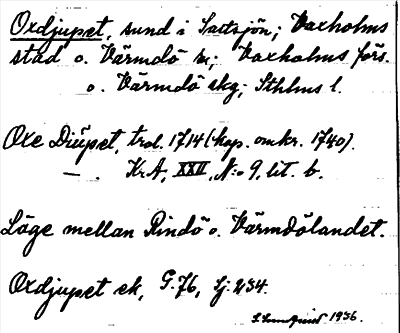 Oxdjupet, sund i Saltsjön; Vaxholms
stad o. Värmdö sn; Vaxholms förs.
o. Värmdö skg; Sthlms l.
Oxe Diüpet, trol. 1714 (kop. omkr. 1740).
— . KrA, XXII, N:o 9, lit. b.
Läge mellan Rindö o. Värmdölandet.
Oxdjupet ek, G:76, Lj:234.
1936.